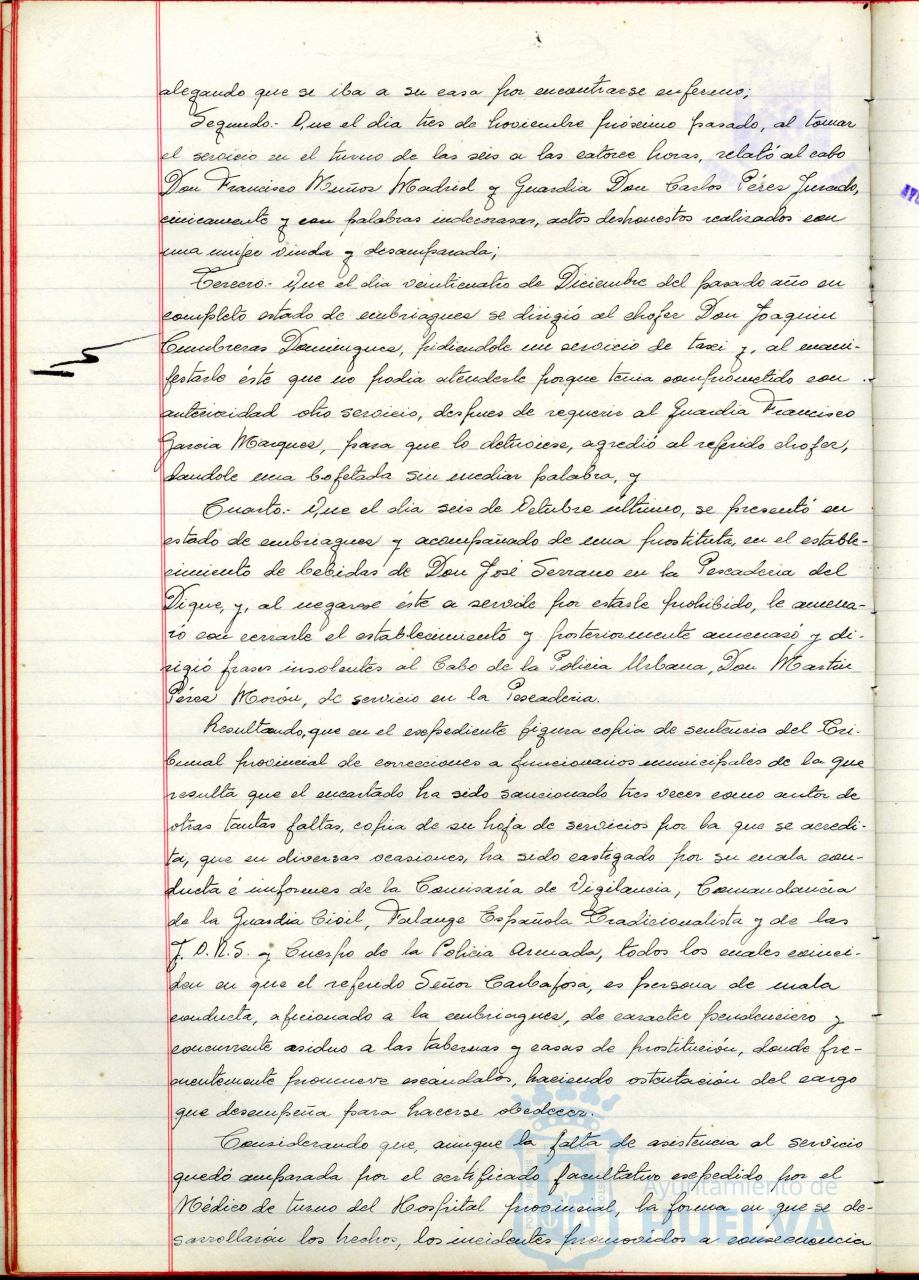 alegando que se iba a su casa por encontrarse enfermo;
Segundo.- Que el dia tres de Noviembre próximo pasado, al tomar
el servicio en el turno de las seis a las catorce horas, relató al cabo
Don Francisco Muñoz Madrid y Guardia Don Carlos Pérez Jurado,
cinicamente y con palabras indecorosas, actos deshonestos realizados con
una mujer viuda y desamparada;
Tercero.- Que el dia veinticuatro de Diciembre del pasado año en
completo estado de embriaguez se dirigió al chofer Don Joaquin
Cumbreras Dominguez, pidiendole un servicio de taxi y, al mani-
festarle éste que no podia atenderle porque tenia comprometido con
anterioridad otro servicio, despues de requerir al Guardia Francisco
Garcia Marquez, para que lo detuviese, agredió al referido chofer,
dandole una bofetada sin mediar palabra, y
Cuarto.- Que el dia seis de Octubre último, se presentó en
estado de embriaguez y acompañado de una prostituta, en el estable-
cimiento de bebidas de Don José Serrano en la Pescaderia del
Dique, y, al negarse éste a servile por estarle prohibido, le amena-
zó con cerrarle el establecimiento y posteriormente amenazó y di-
rigió frases insolentes al Cabo de la Policia Urbana, Don Martin
Pérez Morón, de servicio en la Pescaderia.
Resultando, que en el expediente figura copia de sentencia del Tri-
bunal provincial de correcciones a funcionarios municipales de la que
resulta que el encartado ha sido sancionado tres veces como autor de
otras tantas faltas, copia de su hoja de servicios por la que se acredi-
ta, que en diversas ocasiones, ha sido castigado por su mala con-
ducta é informes de la Comisaría de Vigilancia, Comandancia
de la Guardia Civil, Falange Española Tradicionalista y de las
J.O.N.S. y Cuerpo de la Policia Armada, todos los cuales coinci-
den en que el referido Señor Carbajosa, es persona de mala
conducta, aficionado a la embriaguez, de caracter pendenciero y
concurrente asiduo a las tabernas y casas de prostitución, donde fre-
cuentemente promueve escándalos, haciendo ostentación del cargo
que desempeña para hacerse obedecer.
Considerando que, aunque la falta de asistencia al servicio
quedó amparada por el certificado facultativo expedido por el
Médico de turno del Hospital provincial, la forma en que se de-
sarrollarón los hechos, los incidentes promovidos a consecuencia
Ayuntamiento de
HUELVA